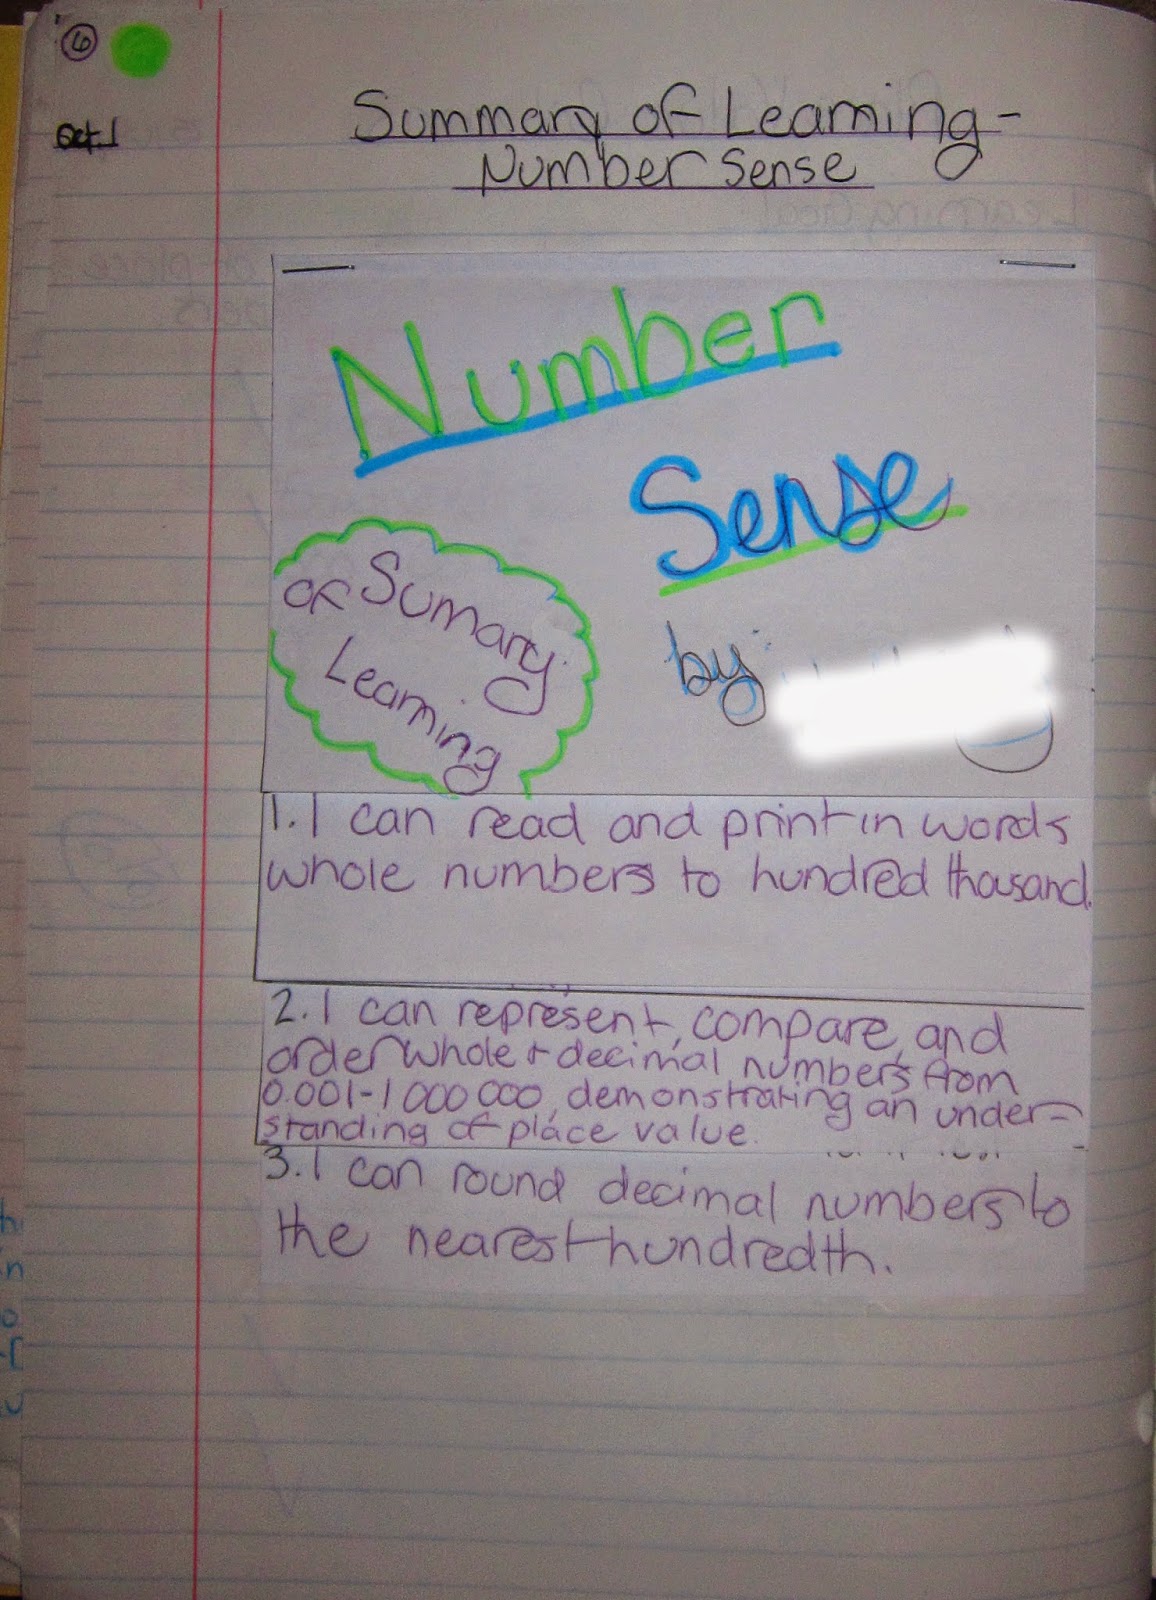 6
Oct. 1
Summary of Learning -
Number Sense
Number
Sense
of Sumary
Learning
by:
1. I can read and print in words
whole numbers to hundred thousand.
2. I can represent, compare, and
order whole + decimal numbers from
0.001-1 000 000, demonstrating an under-
standing of place value.
3. I can round decimal numbers to
the nearest hundredth.